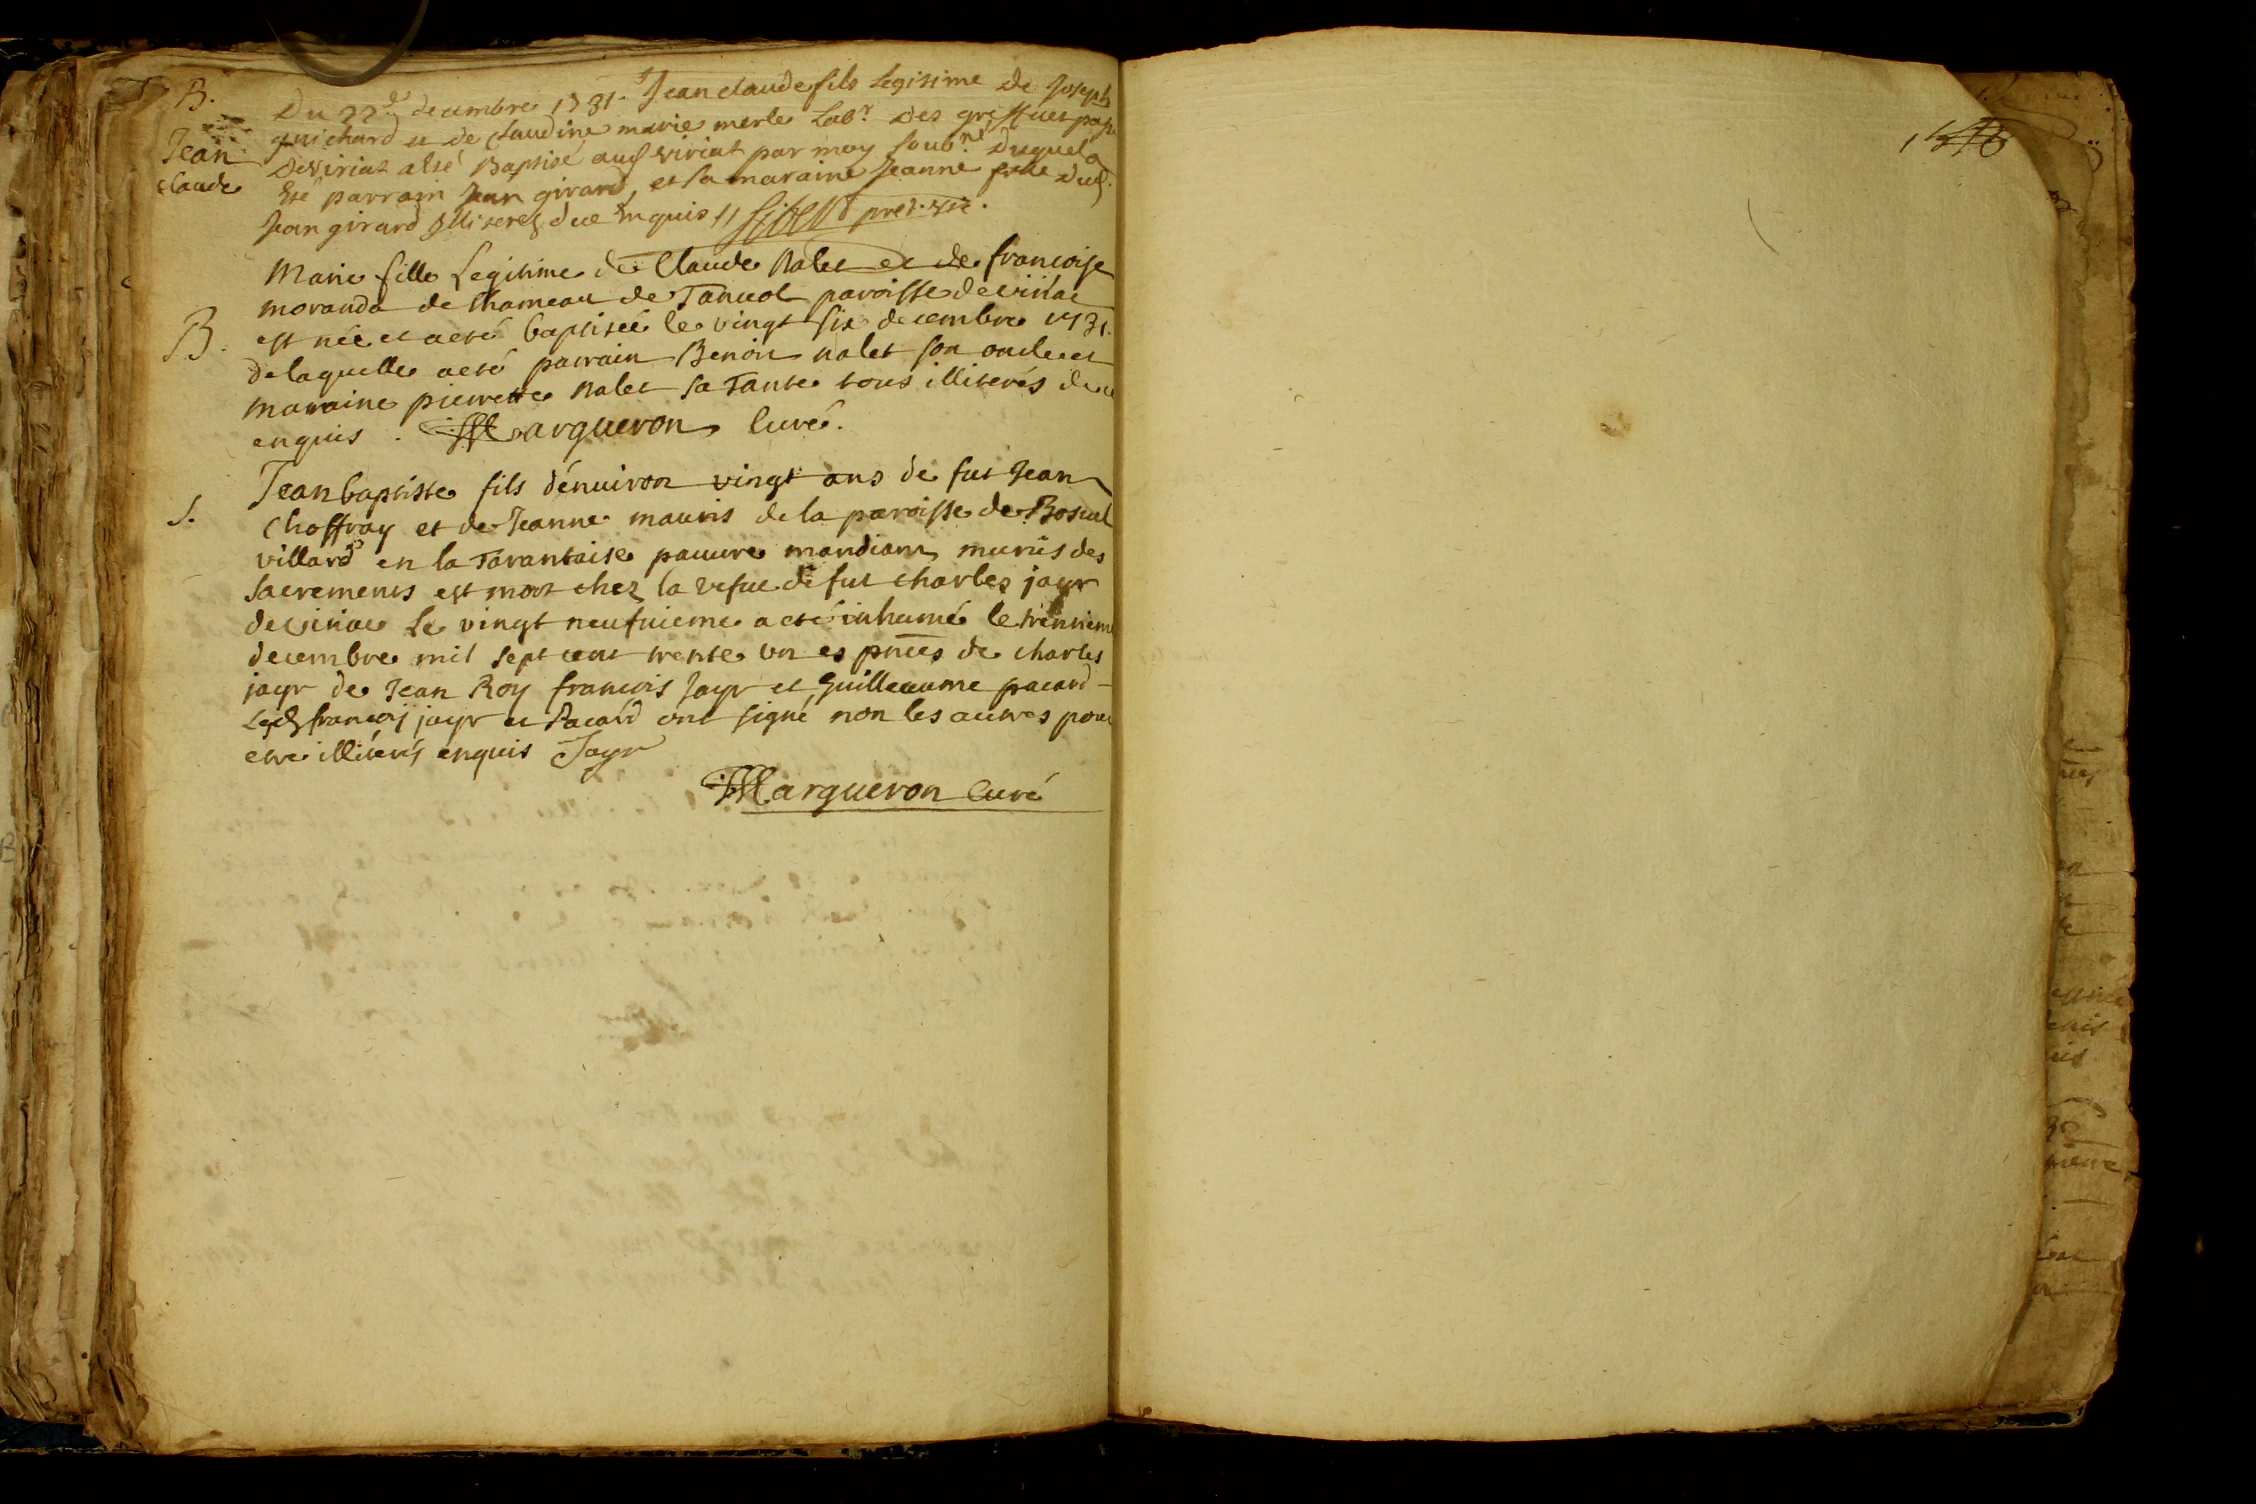 B.
Jean
claude
Du 22e decembre 1731. Jean claude fils Legitime de Joseph
guichard et de Claudine marie merle Labr. des greffiets pa
de viriat a esté Baptisé aud viriat par moy soub.né duquel a
Esté parrain Jean girard, et sa maraine Jeanne fille dud.
Jean girard Illiterez de ce Enquis // pret. vic.
B.
Marie fille Legitime de Claude Nalet et de francoise
moranda de lhameau de Tanvol paroisse de viriac
est née et aeté baptisée le vingt six decembre 1731.
de laquelle aeté parrain Benoit nalet son oncle et
maraine pierrette Nalet sa Tante tous illiterés de ce
enquis. Margueron Curé.
S.
Jean baptiste fils d'énuiron vingt ans de fut Jean
Choffray et de Jeanne mauris de la paroisse de
villard en la Tarantaise pauure mandiant munis des
sacrements est mort chez la vefue de fut charles jayr
de viriac Le vingt neufuieme a eté inhumé le trentieme
decembre mil sept cent trente vn es pnces de charles
jayr de Jean Roy francois Jayr et Guilleaume pacard
Lesd francois jayr et Pacard ont signé non les autres pour
etre illiterés enquis Jayr
Margueron Curé